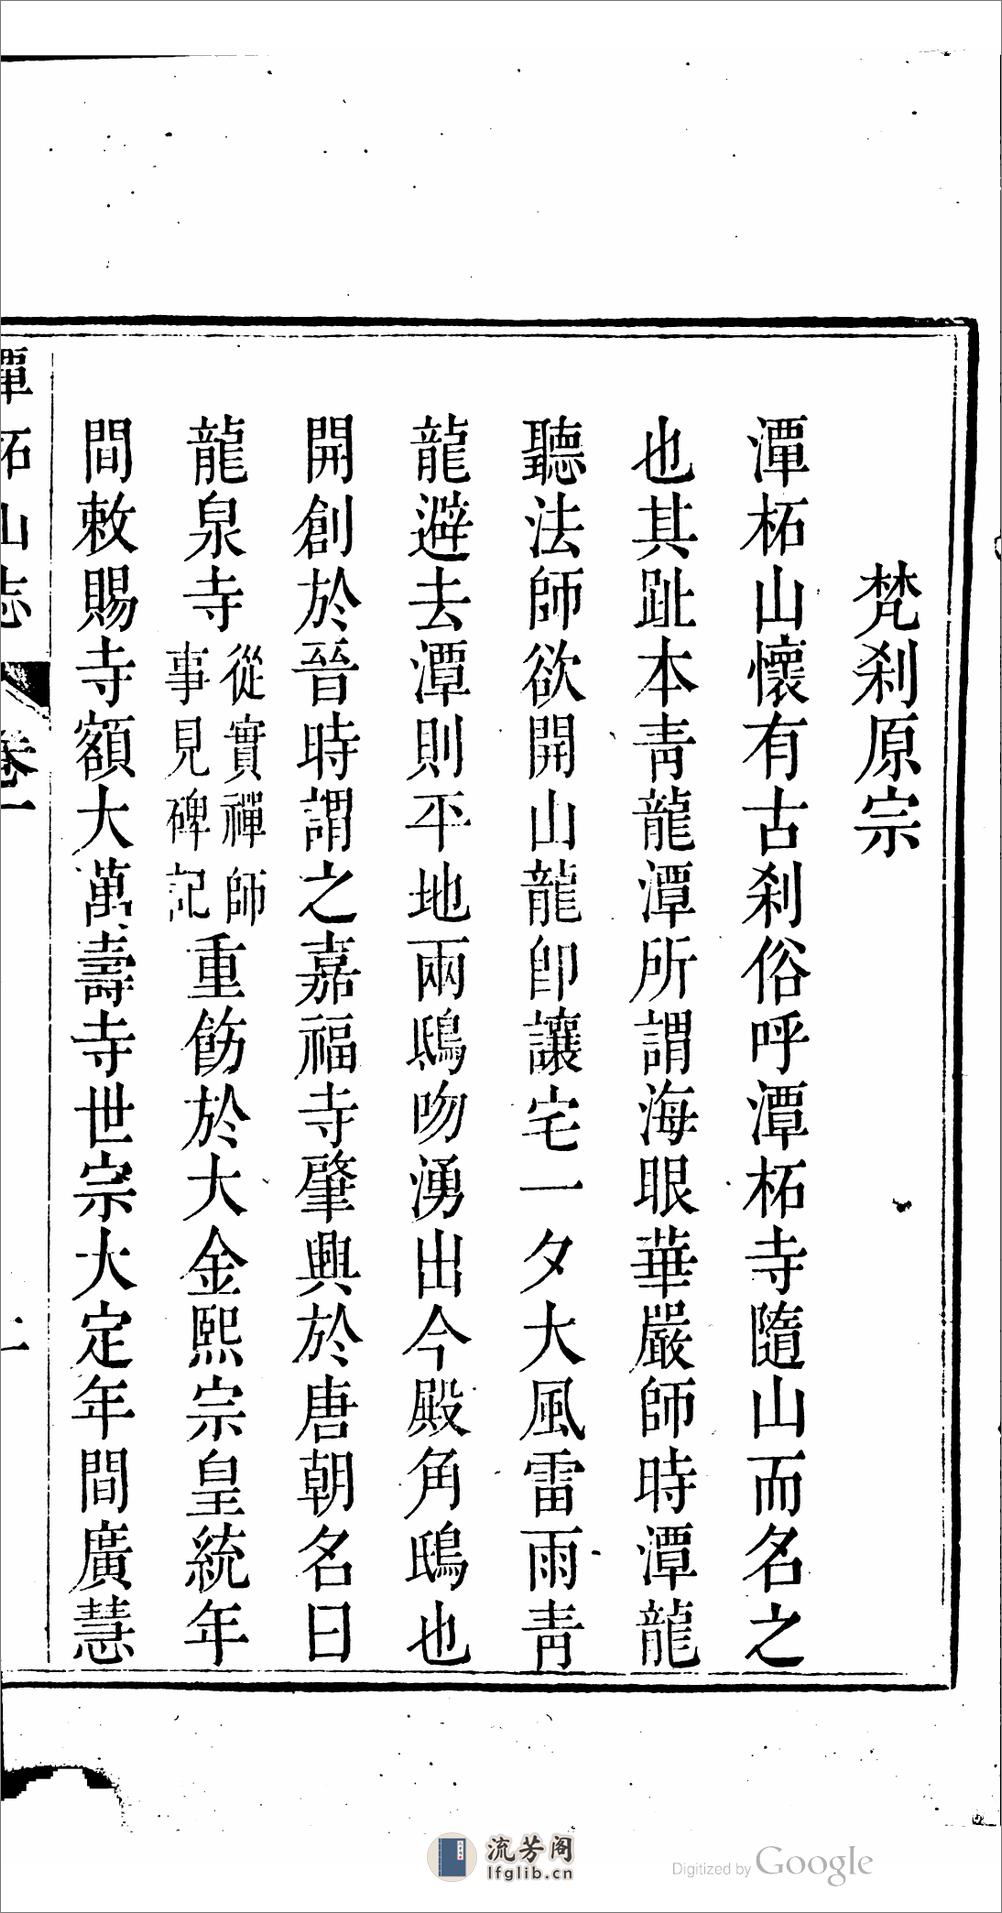 梵刹原宗
潭柘山懷有古刹俗呼潭柘寺隨山而名之
也其趾本青龍潭所謂海眼華嚴師時潭龍
聽法師欲開山龍卽讓宅一夕大風雷雨青
龍避去潭則平地兩鴟吻湧出今殿角鴟也
開創於晉時謂之嘉福寺肇興於唐朝名曰
龍泉寺從實禪師事見碑記重飭於大金熙宗皇統年
間敕賜寺額大萬壽寺世宗大定年間廣慧
潭柘山志 卷一 一
流芳阁
lfglib.cn
Digitized by Google